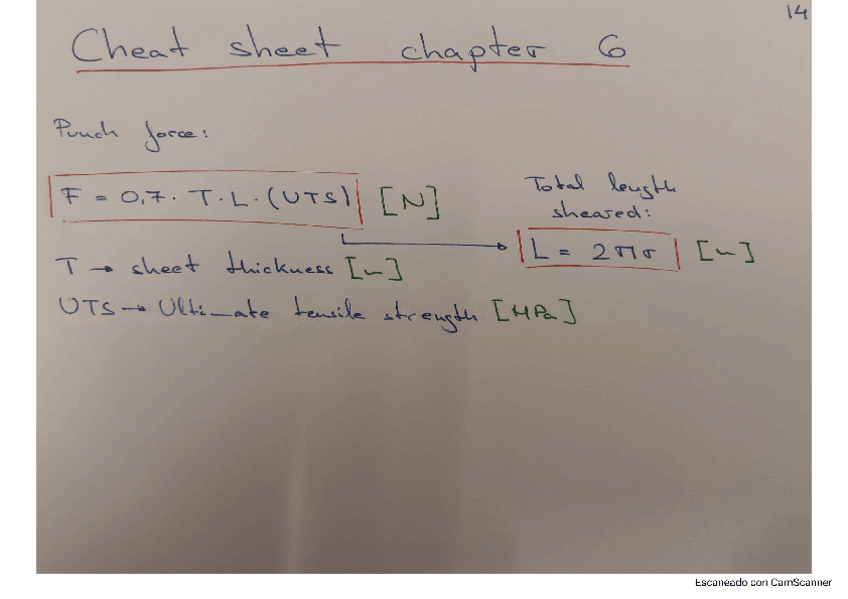 14
Cheat sheet chapter 6
Punch force:
F = 0,7 · T · L · (UTS) [N]
Total length
sheared:
L = 2πr [m]
T → sheet thickness [m]
UTS → Ultimate tensile strength [MPa]
Escaneado con CamScanner